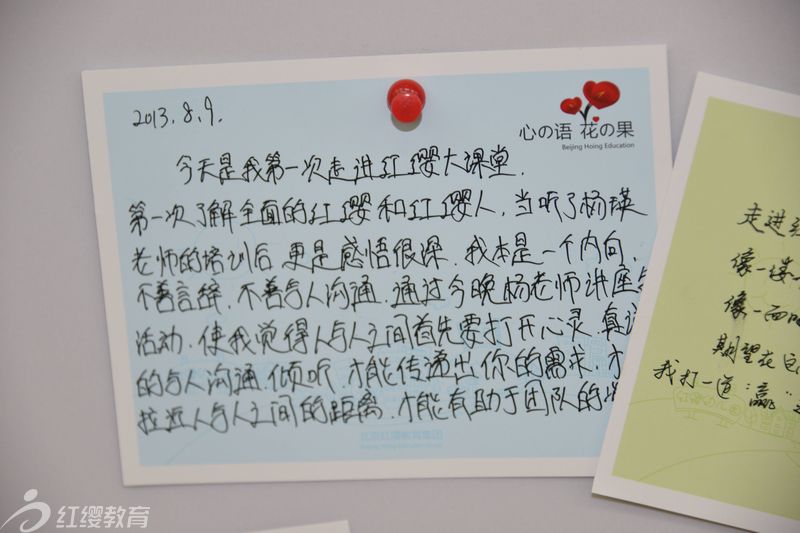 2013.8.9.
心の语 花の果
Beijing Hoing Education
今天是我第一次走进红缨大课堂.
第一次了解全面的红缨和红缨人,当听了杨瑛
老师的培训后,更是感悟很深.我本是一个内向,
不善言辞,不善与人沟通.通过今晚杨老师讲座与
活动,使我觉得人与人之间首先要打开心灵.真
的与人沟通.倾听.才能传递出你的需求.才
拉近人与人之间的距离,才能有助于团队的
北京红缨教育集团
走进
像一
像一
期望在
我打一道:赢"
红缨教育